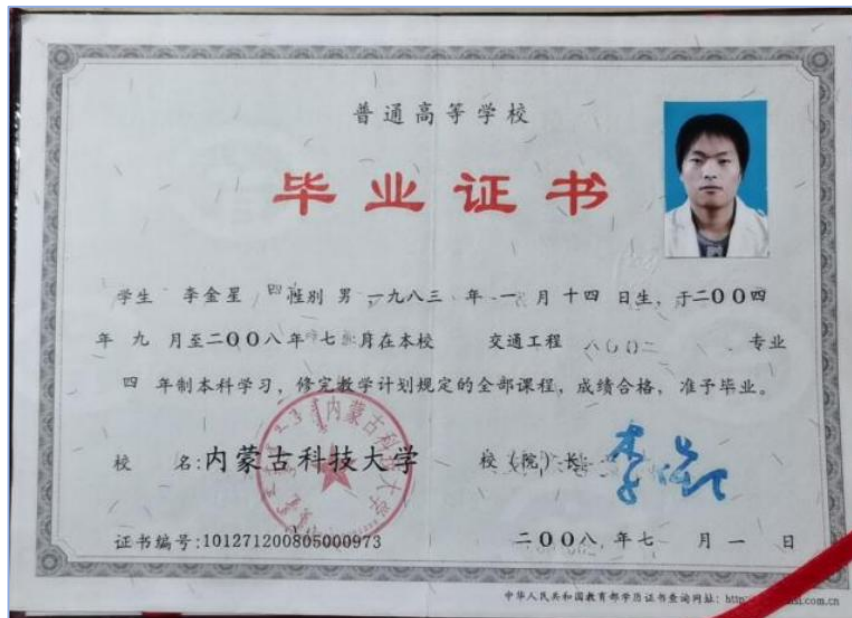 普通高等学校
毕业证书
学生 李金星 性别 男,一九八三 年 一 月 十四 日生, 于二00四
年 九 月至二00八年 七 月在本校 交通工程 专业
四 年制本科学习, 修完教学计划规定的全部课程, 成绩合格, 准予毕业。
校 名:内蒙古科技大学 校(院)长:
内蒙古科技大学
证书编号:101271200805000973 二00八 年 七 月 一 日
中华人民共和国教育部学历证书查询网址: http: